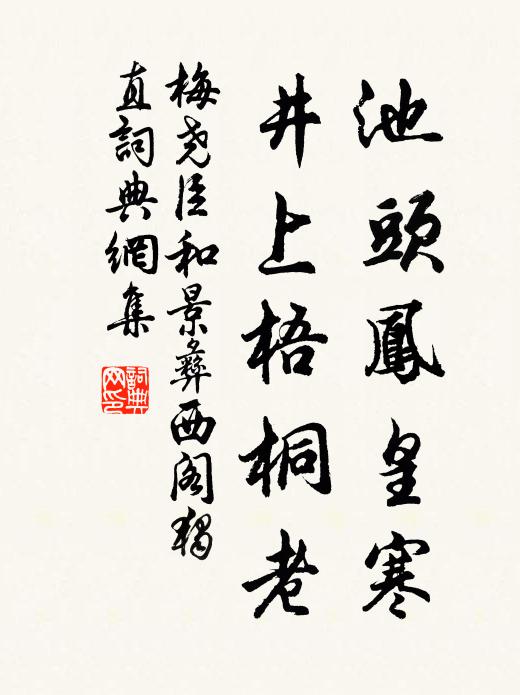 池頭鳳皇寒
井上梧桐老
梅尧臣和景彝西阁獨
直詞典網集
詞典
网印